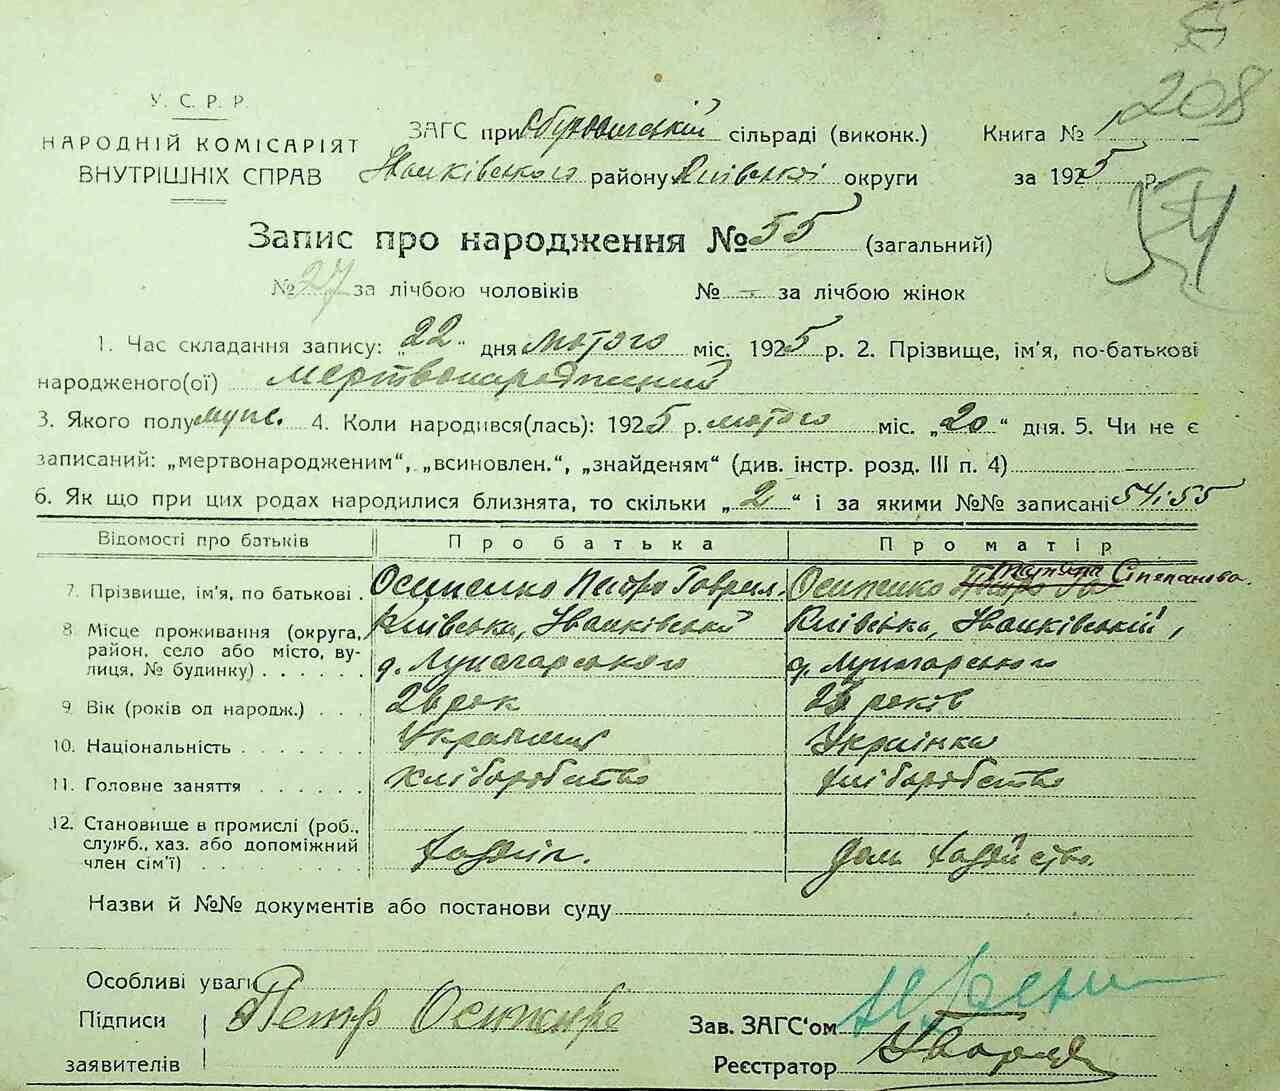 208
54
У. С. Р. Р.
НАРОДНІЙ КОМІСАРІЯТ
ВНУТРІШНІХ СПРАВ
ЗАГС при сільраді (виконк.) Книга №
Іванківського району Київської округи за 1925 р.
Запис про народження № 55 (загальний)
№ 27 за лічбою чоловіків № — за лічбою жінок
1. Час складання запису: „22" дня лютого міс. 1925 р. 2. Прізвище, ім'я, по-батькові
народженого(ої) мертвонароджений
3. Якого полу муж. 4. Коли народився(лась): 1925 р. лютого міс. „20" дня. 5. Чи не є
записаний: „мертвонародженим", „всиновлен.", „знайденям" (див. інстр. розд. III п. 4)
6. Як що при цих родах народилися близнята, то скільки „2" і за якими №№ записані 54 і 55
Відомості про батьків Про батька Про матір
7. Прізвище, ім'я, по батькові . Осипенко Петро Гаврил. Осипенко Татяна Степанова.
8 Місце проживання (округа, Київська, Іванківський Київська, Іванківський,
район, село або місто, ву-
лиця, № будинку) . . . . . . д. Луначарського д. Луначарського
9 Вік (років од народж.) . . . рок років
10. Національність . . . . . . . Українец Українка
11. Головне заняття . . . . . . хліборобство хліборобство
12. Становище в промислі (роб.,
служб., хаз. або допоміжний хазяїн. дом хазяйство.
член сім'ї) . . . . . . . . .
Назви й №№ документів або постанови суду
Особливі уваги
Підписи Петр Зав. ЗАГС'ом
заявителів Реєстратор